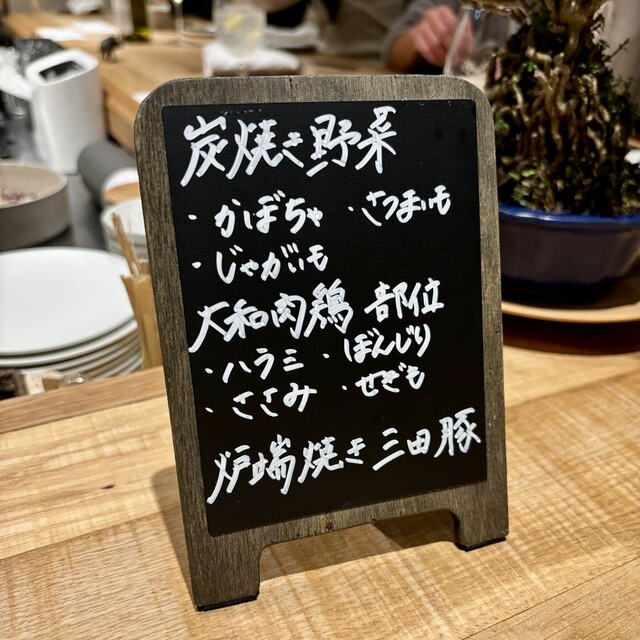 炭焼き野菜
・かぼちゃ ・さつまいも
・じゃがいも
大和肉鶏 部位
・ハラミ ・ぼんじり
・ささみ ・せぎも
炉端焼き 三田豚